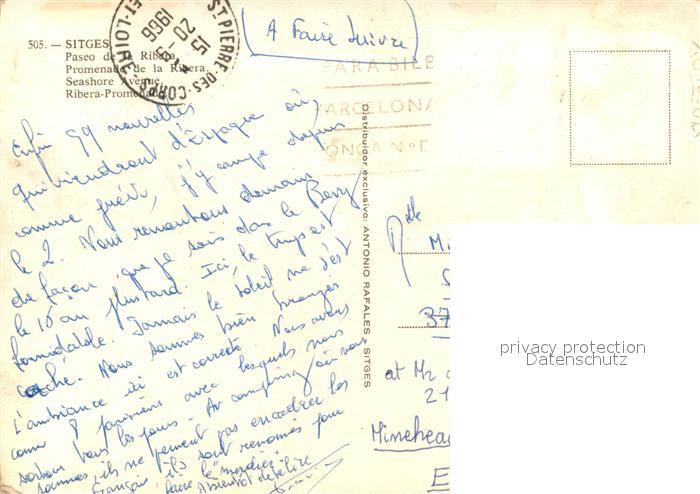 505. — SITGES
Paseo de la Ribera
Promenade de la Ribera.
Seashore Avenue
Ribera-Promenade
ST PIERRE-DES-CORPS
15
20 - 8
1966
ET-LOIRE
A Faire Suivre
PARA BILB
BARCELONA
ONGA Nº
Enfin qq nouvelles
qui viendront d'Espagne où,
comme prévu, j'y campe depuis
le 2. Nous remontons demain
de façon que je sois dans le Berry
le 15 au plus tard. Ici, le temps est
formidable. Jamais le soleil ne s'est
caché. Nous sommes bien bronzés
L'ambiance ici est correcte. Nous avons
connu 8 parisiens avec lesquels nous
sortons tous les jours. Au camping où nous
sommes, ils ne peuvent pas encadrer les
Français, ils sont renommés pour
faire le "merdier".
A bientôt de te lire
Distribuidor exclusivo: ANTONIO RAFALES - SITGES
Mlle
M
S
37
at Mr
21
Minehead
E
privacy protection
Datenschutz